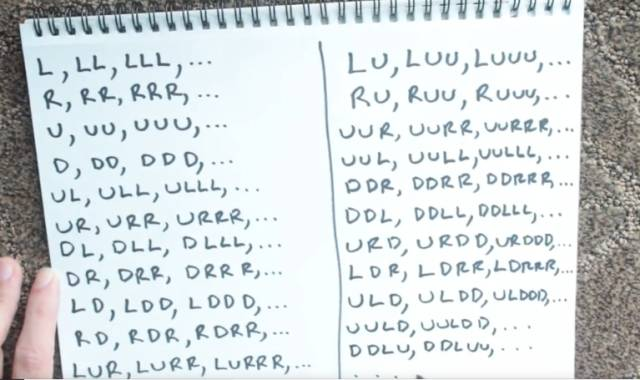 L, LL, LLL, ...
R, RR, RRR, ...
U, UU, UUU, ...
D, DD, DDD, ...
UL, ULL, ULLL, ...
UR, URR, URRR, ...
DL, DLL, DLLL, ...
DR, DRR, DRRR, ...
LD, LDD, LDDD, ...
RD, RDR, RDRR, ...
LUR, LURR, LURRR, ...
LU, LUU, LUUU, ...
RU, RUU, RUUU, ...
UUR, UURR, UURRR, ...
UUL, UULL, UULLL, ...
DDR, DDRR, DDRRR, ...
DDL, DDLL, DDLLL, ...
URD, URDD, URDDD, ...
LDR, LDRR, LDRRR, ...
ULD, ULDD, ULDDD, ...
UULD, UULDD, ...
DDLU, DDLUU, ...
....